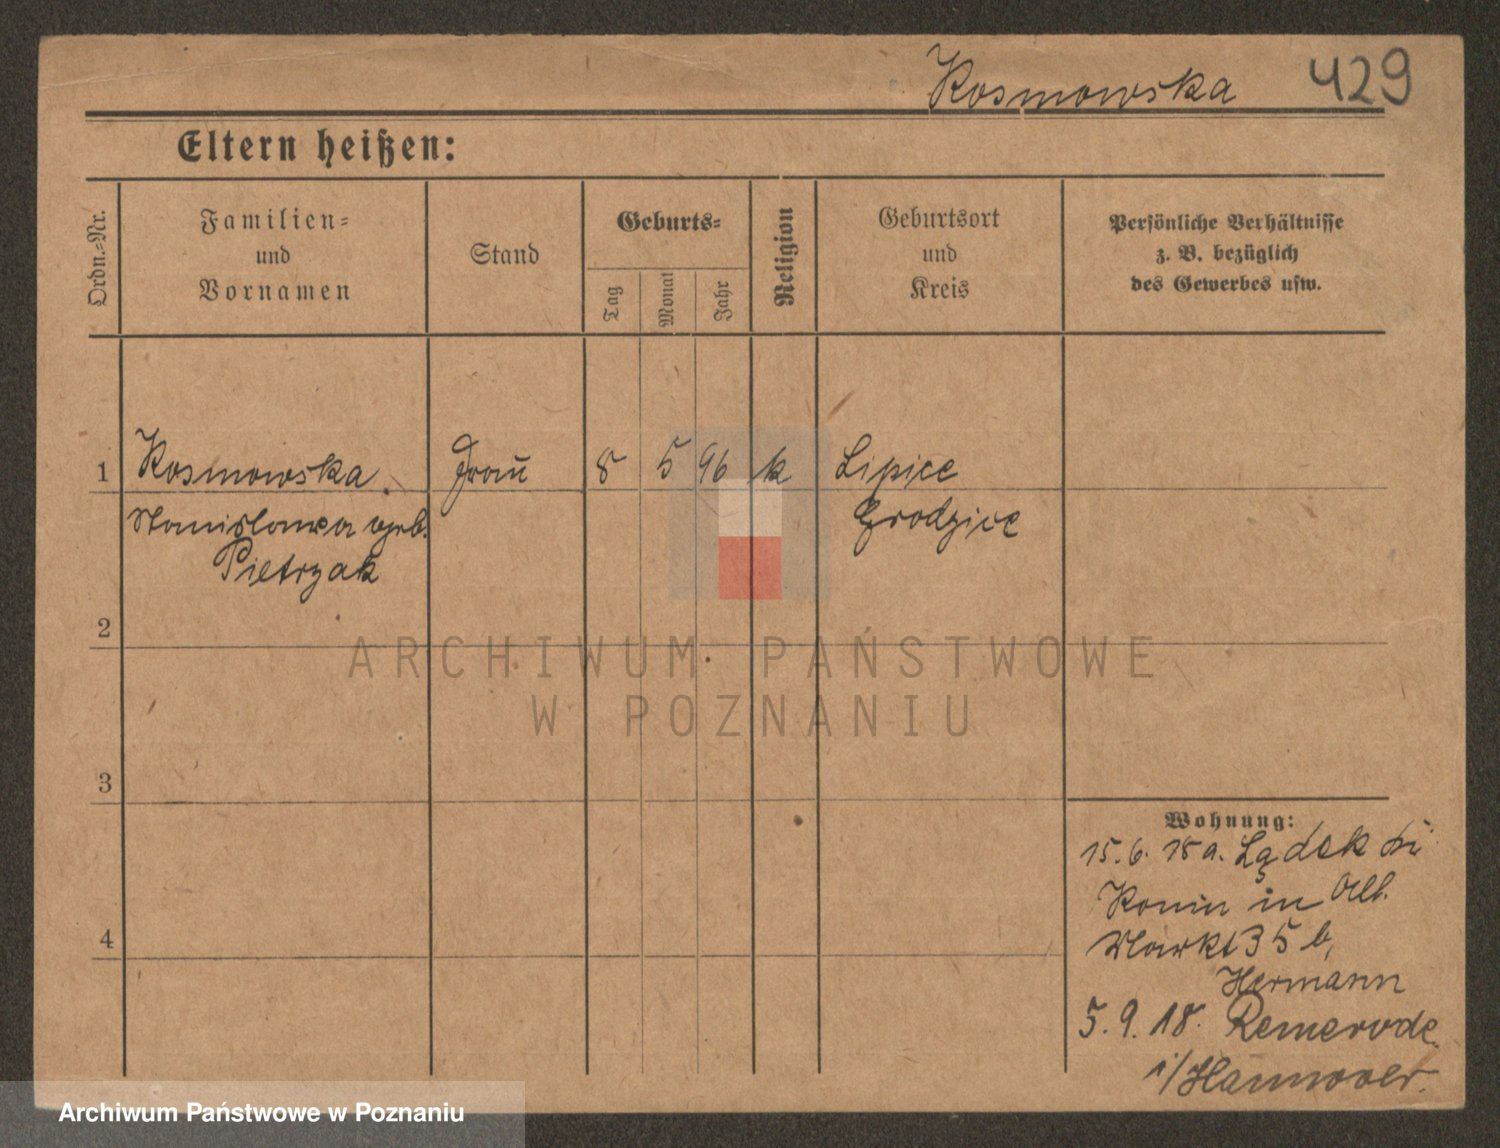 Kosmowska 429
Eltern heißen:
Ordn.-Nr.
Familien=
und
Vornamen
Stand
Geburts=
Tag
Monat
Jahr
Religion
Geburtsort
und
Kreis
Persönliche Verhältnisse
z. B. bezüglich
des Gewerbes usw.
1 Kosmowska, Frau 8 5 96 k Lipice
Stanislawa geb. Grodzice
Pietrzak
2
ARCHIWUM PAŃSTWOWE
W POZNANIU
3
Wohnung:
15.6.18 a. Lądek
Konin in
4 Markt 35 b,
Hermann
5.9.18. Remerode
i/Hannover.
Archiwum Państwowe w Poznaniu